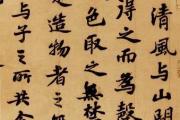 清風与山間
得之而為聲
色取之無禁
是造物者之無
与子之所共食